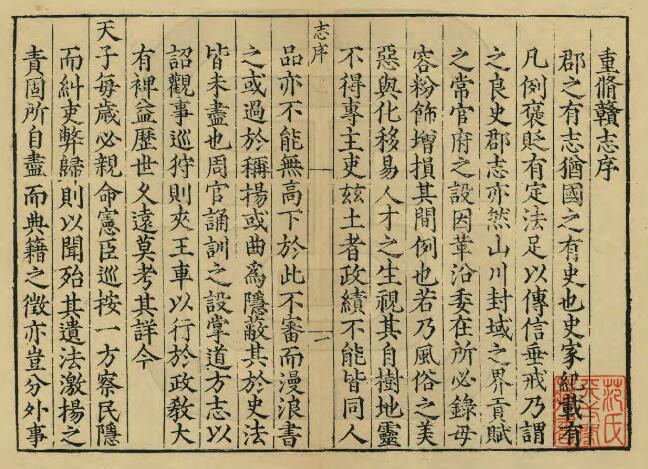 重脩贛志序
郡之有志猶國之有史也史家紀載有
凡例褒貶有定法足以傳信垂戒乃謂
之良史郡志亦然山川封域之界貢賦
之常官府之設因革沿委在所必錄毋
容粉飾增損其間例也若乃風俗之美
惡與化移易人才之生視其自樹地靈
不得專主吏玆土者政績不能皆同人
志序
一
品亦不能無高下於此不審而漫浪書
之或過於稱揚或曲爲隱蔽其於史法
皆未盡也周官誦訓之設掌道方志以
詔觀事巡狩則夾王車以行於政敎大
有裨益歷世久遠莫考其詳今
天子每歲必親命憲臣巡按一方察民隱
而糾吏弊歸則以聞殆其遺法激揚之
責固所自盡而典籍之徵亦豈分外事